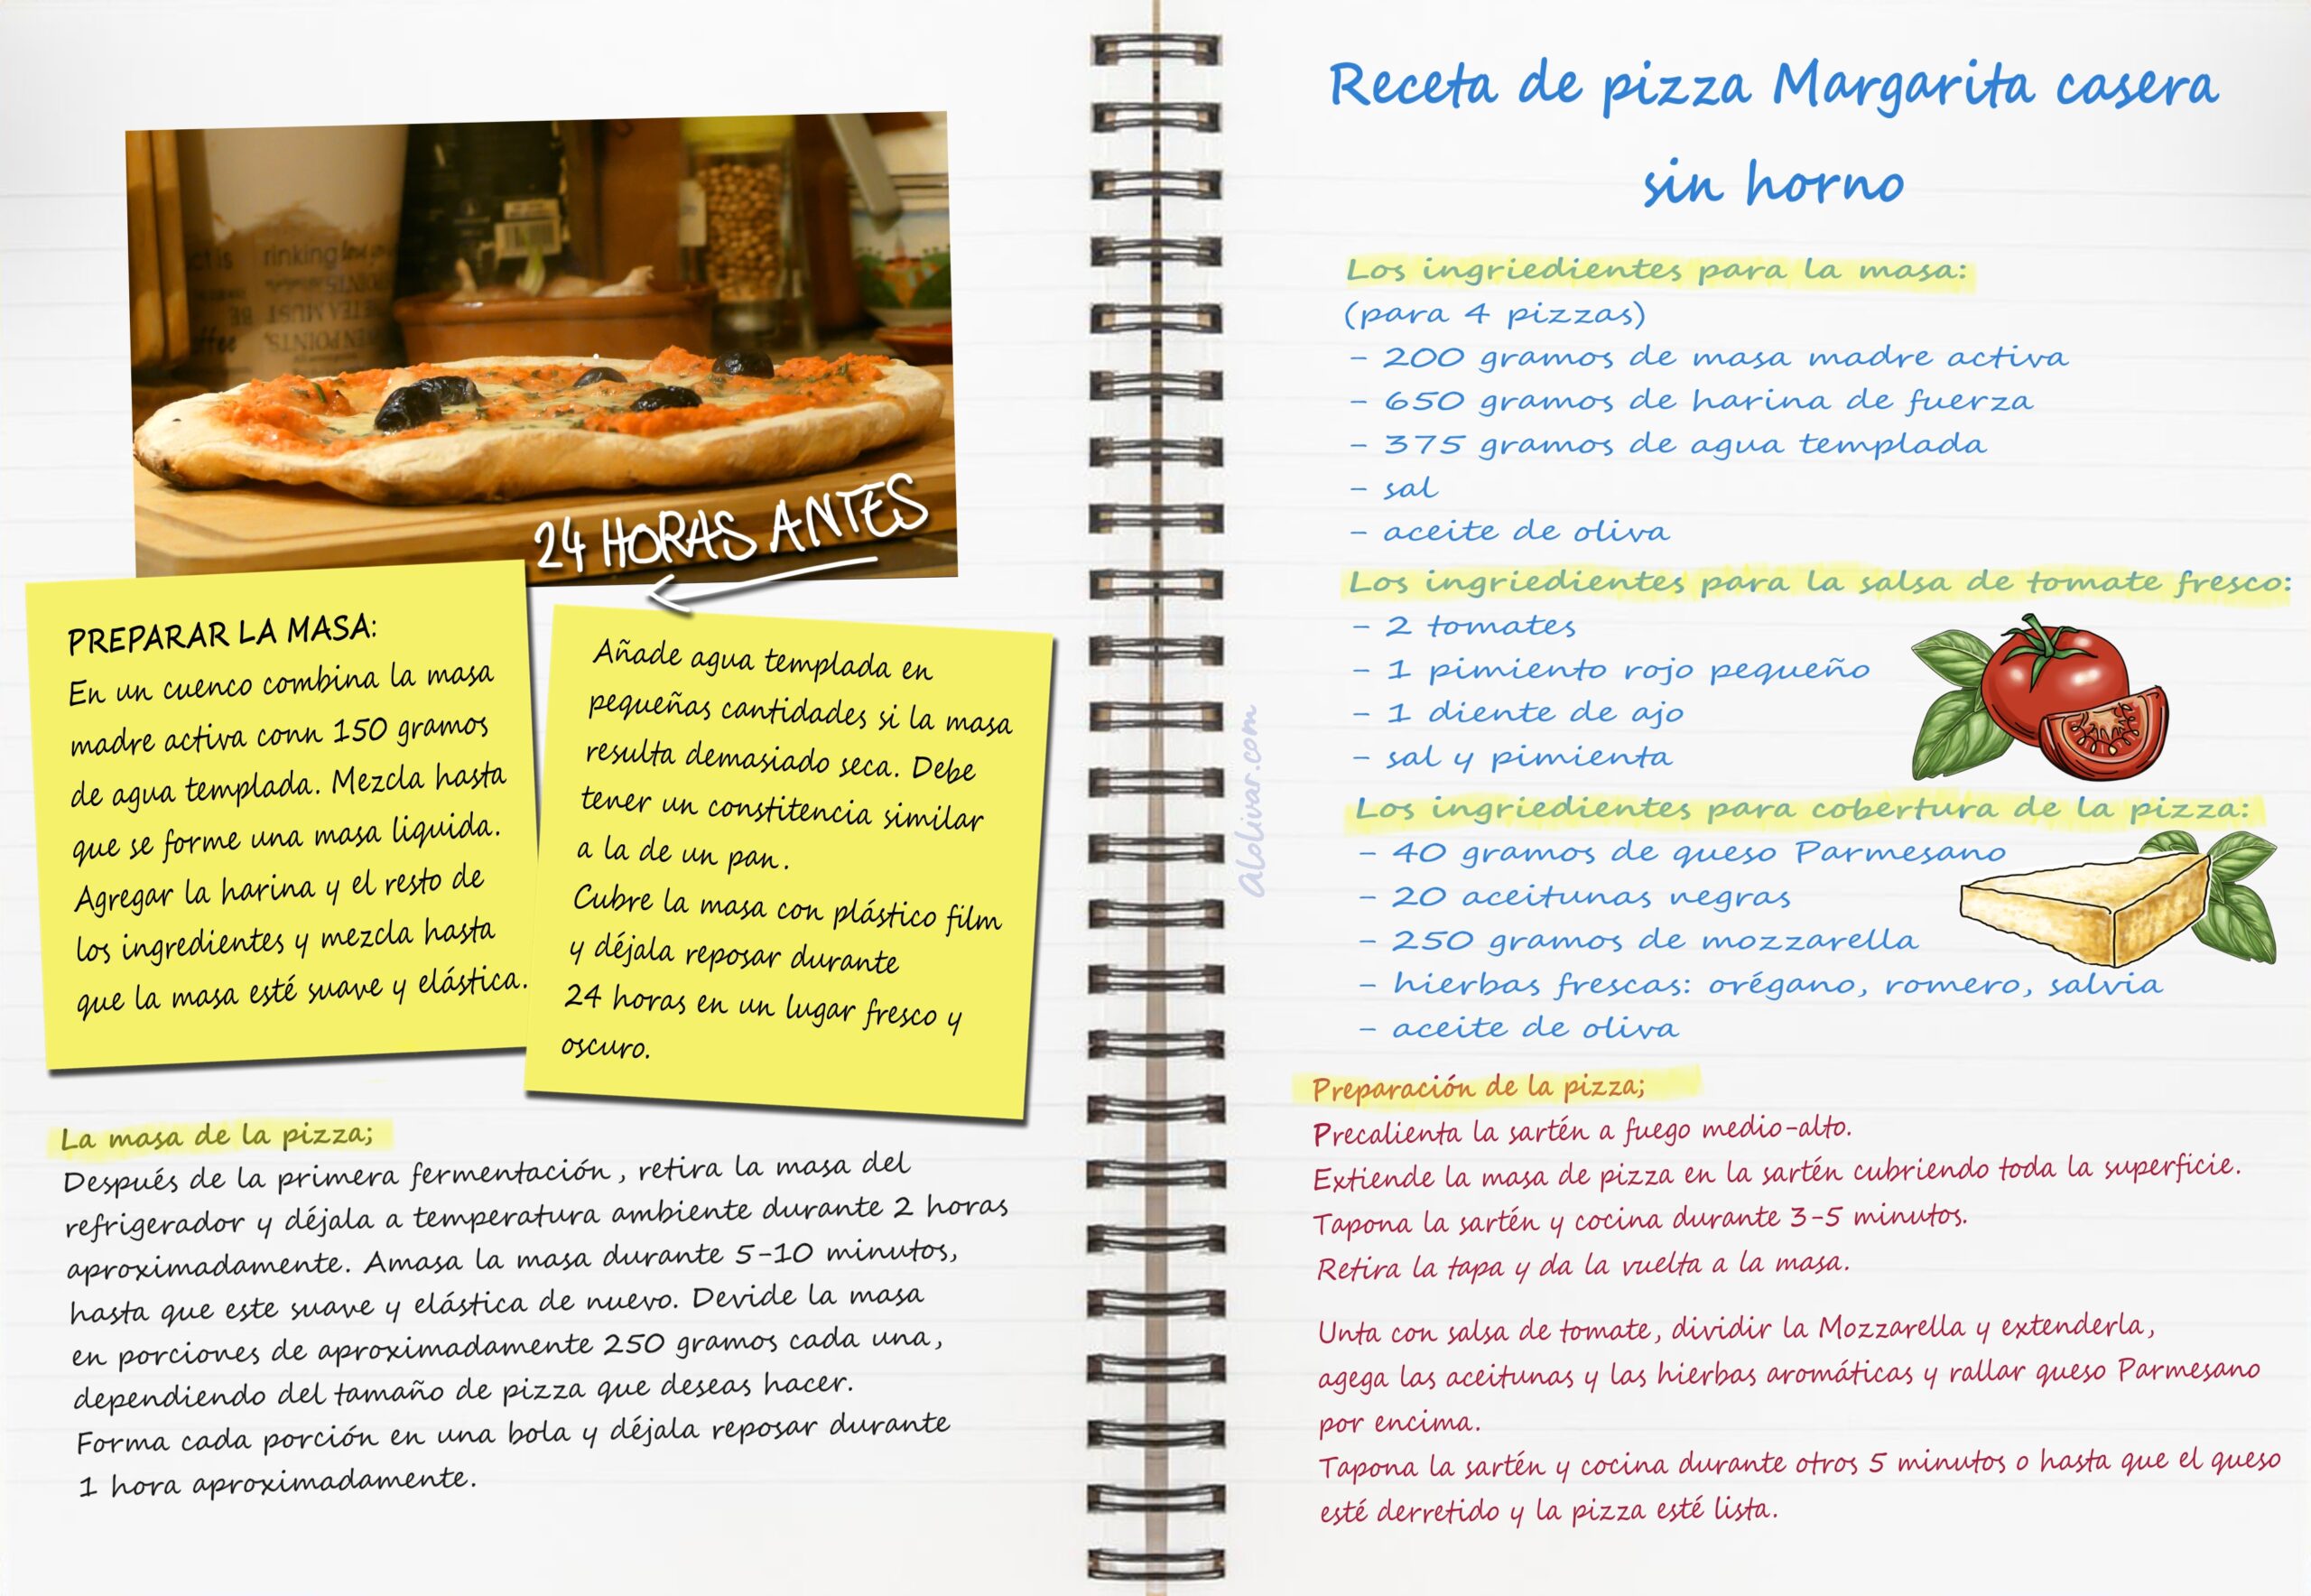 24 HORAS ANTES
PREPARAR LA MASA:
En un cuenco combina la masa
madre activa conn 150 gramos
de agua templada. Mezcla hasta
que se forme una masa liquida.
Agregar la harina y el resto de
los ingredientes y mezcla hasta
que la masa esté suave y elástica.
Añade agua templada en
pequeñas cantidades si la masa
resulta demasiado seca. Debe
tener un constitencia similar
a la de un pan.
Cubre la masa con plástico film
y déjala reposar durante
24 horas en un lugar fresco y
oscuro.
La masa de la pizza;
Después de la primera fermentación, retira la masa del
refrigerador y déjala a temperatura ambiente durante 2 horas
aproximadamente. Amasa la masa durante 5-10 minutos,
hasta que este suave y elástica de nuevo. Devide la masa
en porciones de aproximadamente 250 gramos cada una,
dependiendo del tamaño de pizza que deseas hacer.
Forma cada porción en una bola y déjala reposar durante
1 hora aproximadamente.
alolivar.com
Receta de pizza Margarita casera
sin horno
Los ingriedientes para la masa:
(para 4 pizzas)
- 200 gramos de masa madre activa
- 650 gramos de harina de fuerza
- 375 gramos de agua templada
- sal
- aceite de oliva
Los ingriedientes para la salsa de tomate fresco:
- 2 tomates
- 1 pimiento rojo pequeño
- 1 diente de ajo
- sal y pimienta
Los ingriedientes para cobertura de la pizza:
- 40 gramos de queso Parmesano
- 20 aceitunas negras
- 250 gramos de mozzarella
- hierbas frescas: orégano, romero, salvia
- aceite de oliva
Preparación de la pizza;
Precalienta la sartén a fuego medio-alto.
Extiende la masa de pizza en la sartén cubriendo toda la superficie.
Tapona la sartén y cocina durante 3-5 minutos.
Retira la tapa y da la vuelta a la masa.
Unta con salsa de tomate, dividir la Mozzarella y extenderla,
agega las aceitunas y las hierbas aromáticas y rallar queso Parmesano
por encima.
Tapona la sartén y cocina durante otros 5 minutos o hasta que el queso
esté derretido y la pizza esté lista.